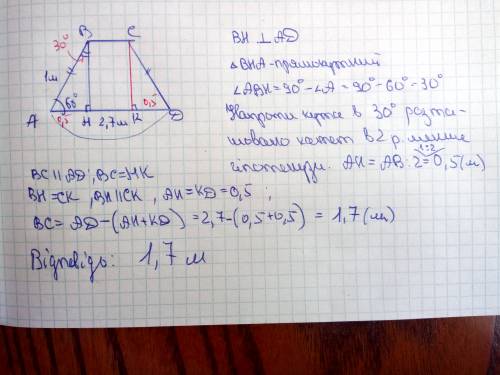 B C
30°
1м
60° 0,5
A 0,5 H 2,7м K D
BH ⊥ AD
△BHA-прямокутний
∠ABH=90°-∠A=90°-60°-30°
Напроти кута в 30° розта-
шовано катет в 2 р. менше
гіпотенузи. AH=AB:2=0,5(м)
1:2
BC || AD, BC=HK
BH=CK, BH||CK, AH=KD=0,5;
BC=AD-(AH+KD)=2,7-(0,5+0,5)=1,7(м)
Відповідь: 1,7 м